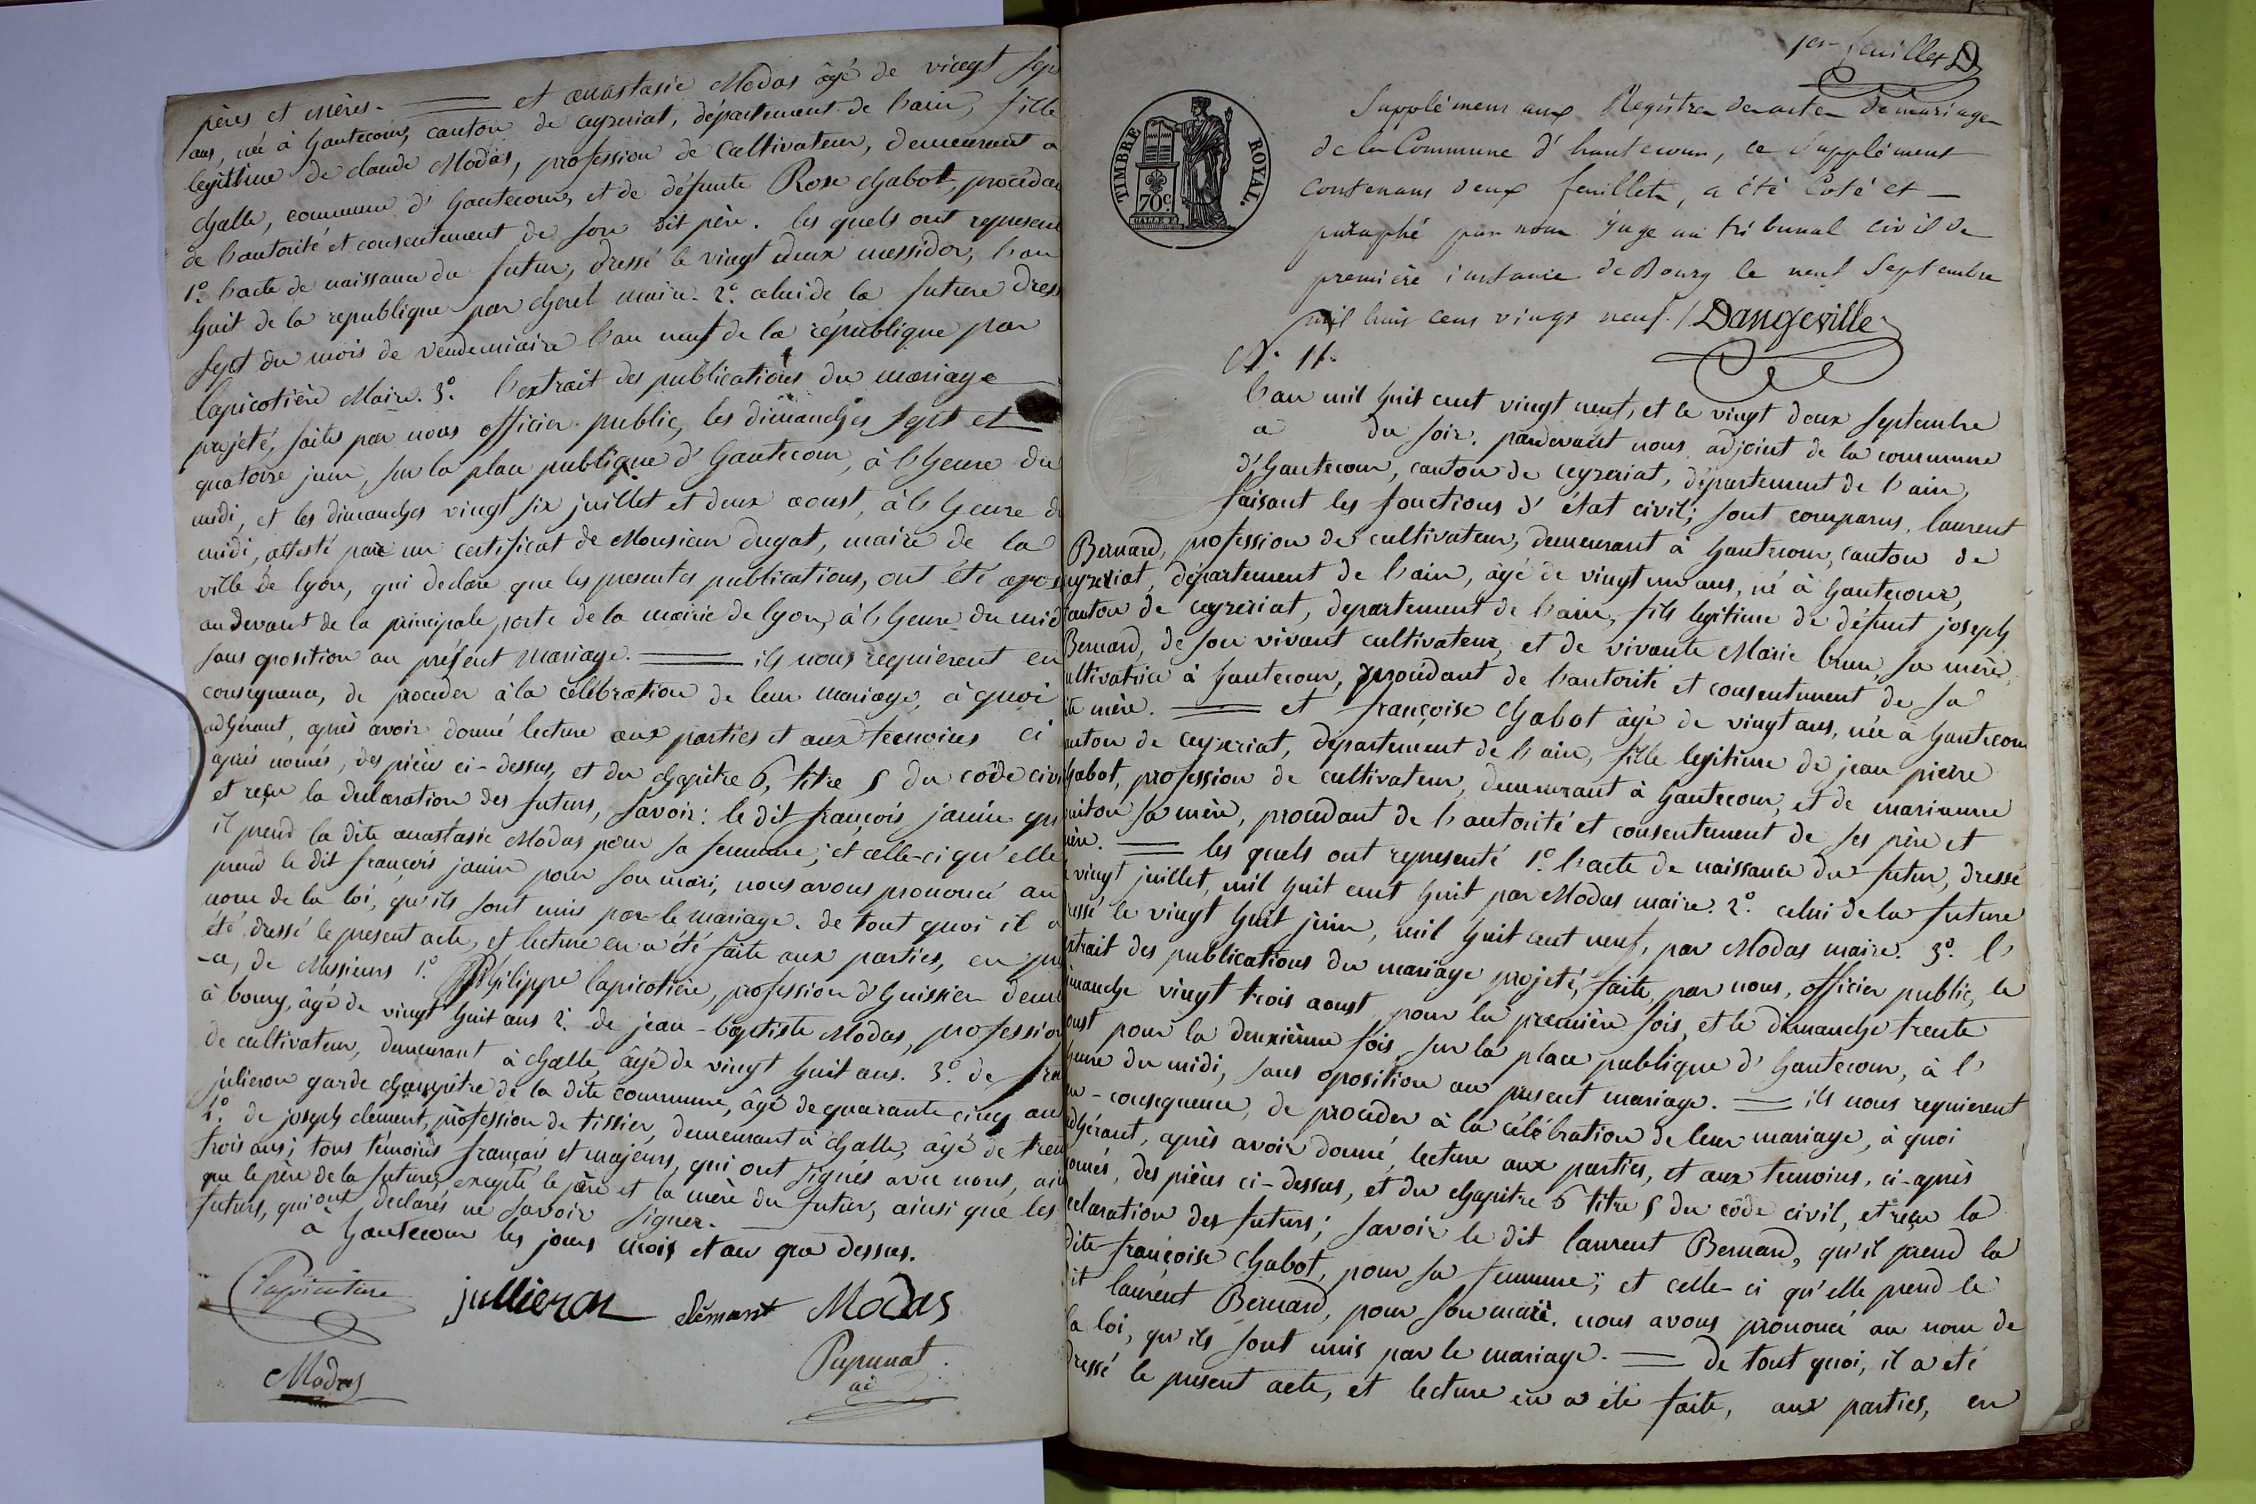 pères et mères. — et anastasie Modas âgé de vingt sep
ans, né à hautecour, canton de ceyzeriat, département de l'ain, fille
legittime de claude Modas, profession de cultivateur, demeurant a
challe, commune d'hautecour, et de défunte Rose chabot, procédan
de l'autorité et consentement de son dit père. les quels ont represent
1º. l'acte de naissance du futur, dressé le vingt deux messidor, l'an
huit de la republique par cherel maire. 2º. celui de la future dres
sept du mois de vendemiaire l'an neuf de la république par
lapicotière Maire. 3º. l'extrait des publications du mariage
projeté, faites par nous officier public, les dimanches sept et
quatorze juin, sur la place publique d'hautecour, à l'heure du
midi, et les dimanches vingt six juillet et deux aoust, à l'heure du
midi, attesté par un certificat de Monsieur dugat, maire de la
ville de lyon, qui declare que les presentes publications, ont été apos
au devant de la principale porte de la mairie de lyon, à l'heure du mid
sans oposition au présent mariage. — ils nous requierent en
consequence, de proceder à la célébration de leur mariage, à quoi
adhérant, après avoir donné lecture aux parties et aux temoins ci
après només, des pièces ci-dessus, et du chapitre 6, titre 5 du côde civi
et reçu la declaration des futurs, savoir: le dit françois janin qu
il prend la dite anastasie Modas pour sa femme; et celle-ci qu'elle
prend le dit françois janin pour son mari, nous avons prononcé au
nom de la loi, qu'ils sont unis par le mariage. de tout quoi il a
été dressé le present acte, et lecture en a été faite aux parties, en pre
-ce, de Messieurs 1º. Philippe lapicotière, profession d'huissier deme
à bourg, âgé de vingt huit ans 2º. de jean-baptiste Modas, profession
de cultivateur, demeurant à challe, âgé de vingt huit ans. 3º. de fra
julieron garde champêtre de la dite commune, âgé de quarante cinq an
4º. de joseph clement, profession de tissier, demeurant à challe, âgé de tren
trois ans; tous témoins français et majeurs, qui ont signés avec nous, ain
que le père de la future, excepté le père et la mère du futur, ainsi que les
futurs, qui ont declarés ne savoir signer.
à hautecour les jours mois et an que dessus.
Lapicotiere jullieron clémant Modas
Modas Papunat
adj
1er feuillet D
TIMBRE ROYAL.
70c
Supplément aux Registres des actes de mariage
de la Commune d'hautecour, ce supplément
contenant deux feuillets, a été Coté et —
paraphé par nous juge au tribunal civil de
première instance de Bourg le neuf Septembre
mil huit cent vingt neuf. / Dangeville
Nº 11.
l'an mil huit cent vingt neuf, et le vingt deux septembre
a du soir. pardevant nous adjoint de la commune
d'hautecour, canton de ceyzeriat, département de l'ain,
faisant les fonctions d'état civil; sont comparus. laurent
Bernard, profession de cultivateur, demeurant à hautecour, canton de
eyzeriat, département de l'ain, âgé de vingt un ans, né à hautecour,
canton de ceyzeriat, departement de l'ain, fils legitime de défunt joseph
Bernard, de son vivant cultivateur, et de vivante Marie brun, sa mère,
ultivatrice à hautecour, procédant de l'autorité et consentement de sa
ite mère. — et françoise chabot âgé de vingt ans, née à hautecour
anton de ceyzeriat, département de l'ain, fille legitime de jean pierre
habot, profession de cultivateur, demeurant à hautecour, et de marianne
uiton sa mère, procédant de l'autorité et consentement de ses père et
ère. — les quels ont representé 1º. l'acte de naissance du futur, dressé
e vingt juillet, mil huit cent huit par Modas maire. 2º. celui de la future
essé le vingt huit juin, mil huit cent neuf, par Modas maire. 3º. l'
xtrait des publications du mariage projeté, faite par nous, officier public, le
imanche vingt trois aoust, pour la première fois, et le dimanche trente
oust pour la deuxième fois, sur la place publique d'hautecour, à l'
heure du midi, sans oposition au present mariage. — ils nous requierent
en-consequence, de proceder à la célébration de leur mariage, à quoi
adhérant, après avoir donné lecture aux parties, et aux temoins, ci-après
només, des pièces ci-dessus, et du chapitre 6 titre 5 du côde civil, et reçu la
eclaration des futurs; savoir le dit laurent Bernard, qu'il prend la
dite françoise chabot, pour sa femme; et celle-ci qu'elle prend le
it laurent Bernard, pour son mari. nous avons prononcé au nom de
la loi, qu'ils sont unis par le mariage. — De tout quoi, il a eté
dressé le present acte, et lecture en a été faite, aux parties, en